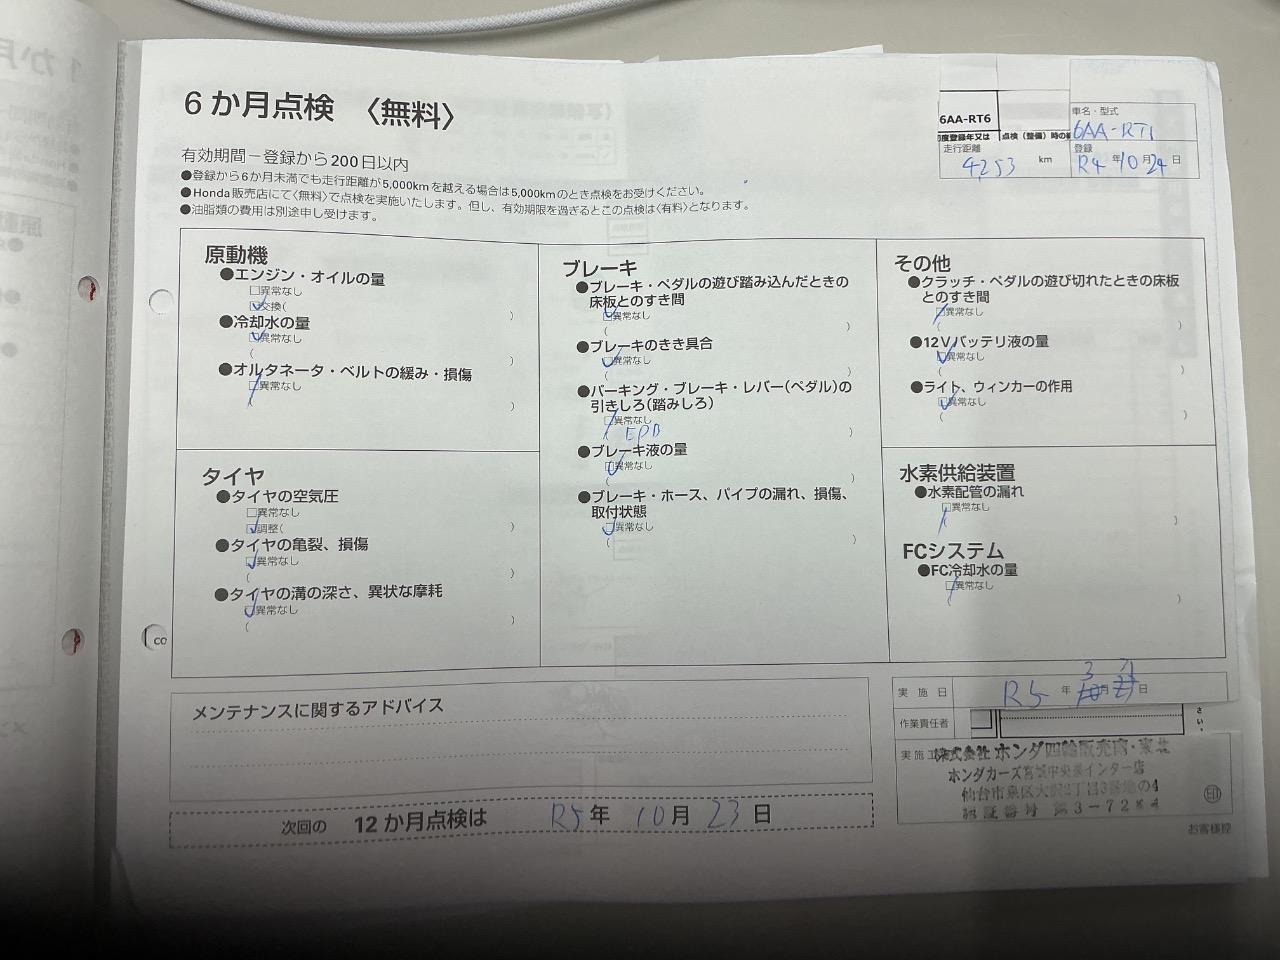 6か月点検 〈無料〉
有効期間－登録から200日以内
●登録から6か月未満でも走行距離が5,000kmを越える場合は5,000kmのとき点検をお受けください。
●Honda販売店にて〈無料〉で点検を実施いたします。但し、有効期限を過ぎるとこの点検は〈有料〉となります。
●油脂類の費用は別途申し受けます。
6AA-RT6
車名・型式
6AA-RT6
初度登録年又は
点検（整備）時の
走行距離
4253 km
登録
R4年10月24日
原動機
●エンジン・オイルの量
□異常なし
☑交換( )
●冷却水の量
☑異常なし
( )
●オルタネータ・ベルトの緩み・損傷
□異常なし
( )
タイヤ
●タイヤの空気圧
□異常なし
☑調整( )
●タイヤの亀裂、損傷
☑異常なし
( )
●タイヤの溝の深さ、異状な摩耗
☑異常なし
( )
ブレーキ
●ブレーキ・ペダルの遊び踏み込んだときの
床板とのすき間
☑異常なし
( )
●ブレーキのきき具合
☑異常なし
( )
●パーキング・ブレーキ・レバー(ペダル)の
引きしろ(踏みしろ)
□異常なし
( EPB )
●ブレーキ液の量
☑異常なし
( )
●ブレーキ・ホース、パイプの漏れ、損傷、
取付状態
☑異常なし
( )
その他
●クラッチ・ペダルの遊び切れたときの床板
とのすき間
□異常なし
( )
●12Vバッテリ液の量
☑異常なし
( )
●ライト、ウィンカーの作用
☑異常なし
( )
水素供給装置
●水素配管の漏れ
□異常なし
( )
FCシステム
●FC冷却水の量
□異常なし
( )
メンテナンスに関するアドバイス
次回の 12か月点検は R5年 10月 23日
実施日 R5年 3月 日
作業責任者
さい。
実施工
株式会社ホンダ四輪販売南・東北
ホンダカーズ宮城中央泉インター店
仙台市泉区大沢2丁目3番地の4
認証番号 第3-7284
印
お客様控
CO